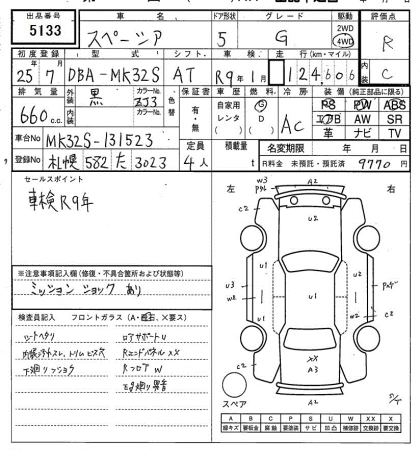 出品番号 車名 ドア形状 グレード 駆動 評価点
5133 スペーシア 5 G 2WD 4WD R
初度登録 型式 シフト 車検 走行(km・マイル) 内装
25年7月 DBA-MK32S AT R9年1月 124,606 C
排気量 外装 黒 カラーNo. ZJ3 色替 保証書 車歴 燃料 冷房 装備(純正部品に限る)
660c.c. 内装 カラーNo. 有・無 自家用 レンタ G D AC PS PW ABS
エアB AW SR
革 ナビ TV
車台No MK32S-131523 定員 積載量 名変期限 年 月 日
登録No 札幌 582 た 3023 4人 t R料金 未預託・預託済 9770円
セールスポイント
車検R9年
※注意事項記入欄(修復・不具合箇所および状態等)
ミッションショックあり
検査員記入 フロントガラス(A・飛石、×要ス)
シートヘタリ ロアサポートU
内装汚れスレ、トリムビス穴 RエンドパネルXX
下廻りサビ RフロアW
左 右
w3 A2
c2 u2 c2
u3 u1 u1
w2 u1 c2
c2 XX
A3
A2
スペア
A B C P S U W X XX
線キズ 要板金 腐触 要塗装 サビ 凹凸 補修跡 要交換 交換済